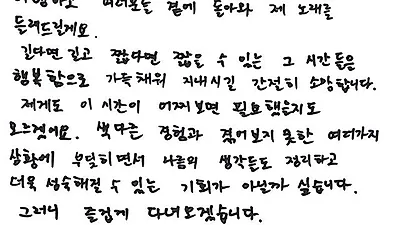 여러분들 곁에 돌아와 제 노래를
들려드릴게요.
길다면 길고 짧다면 짧을 수 있는 그 시간들은
행복함으로 가득채워 지내시길 간절히 소망합니다.
제게도 이 시간이 어쩌보면 필요했을지도
모르겠어요. 색다른 경험과 겪어보지 못한 여러가지
상황에 부딪히면서 나름의 생각들도 정리하고
더욱 성숙해질 수 있는 기회가 아닐까 싶습니다.
그러니 즐겁게 다녀오겠습니다.